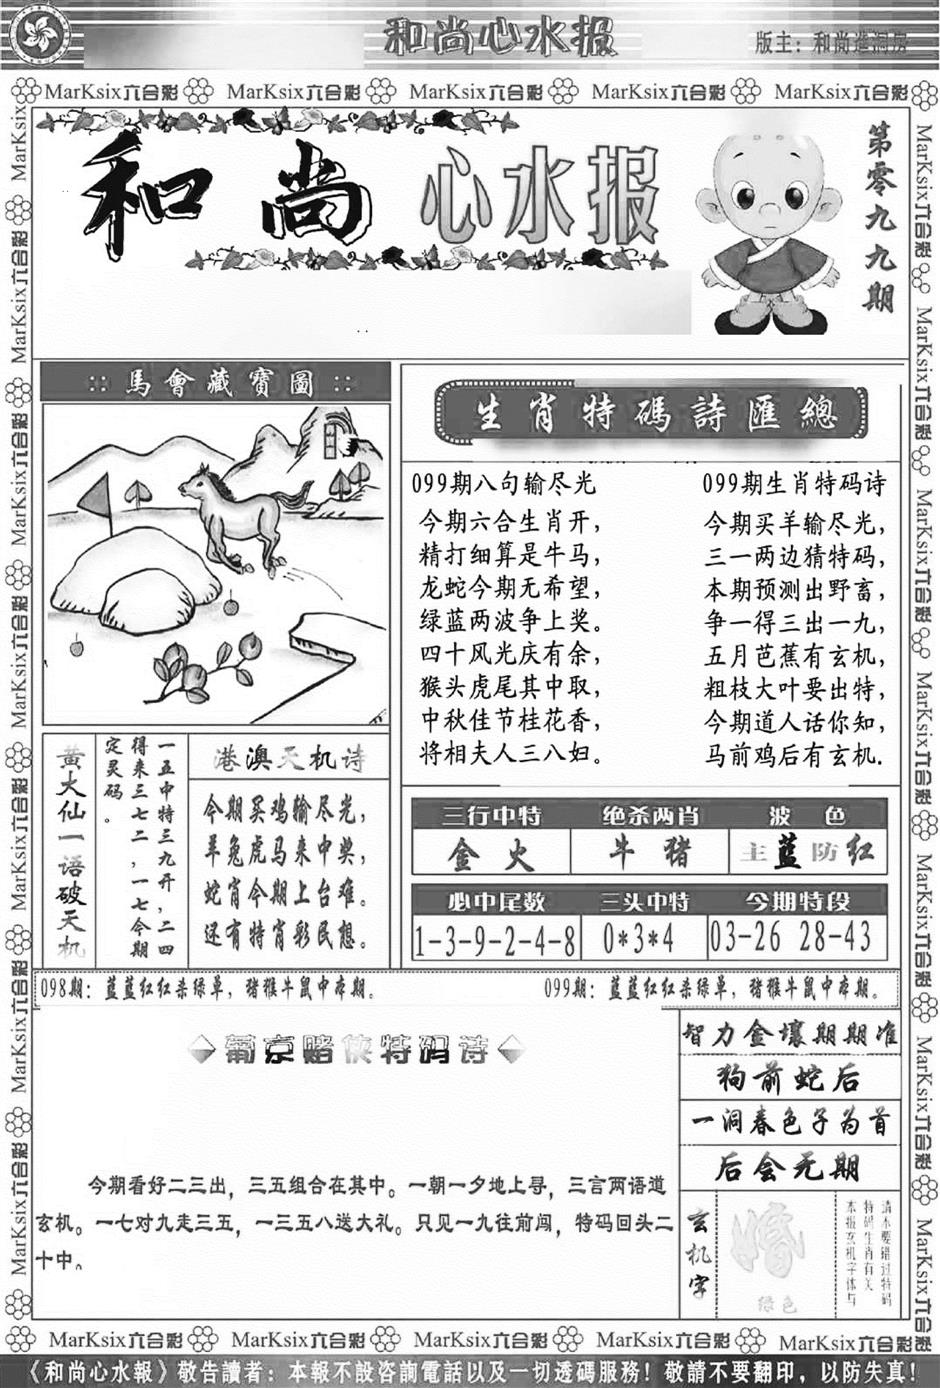 和尚心水报
版主：和尚造洞房
MarKsix六合彩 MarKsix六合彩 MarKsix六合彩 MarKsix六合彩 MarKsix六合彩
和尚心水报
第零九九期
:: 馬會藏寶圖 ::
生肖特碼詩匯總
099期八句输尽光
今期六合生肖开，
精打细算是牛马，
龙蛇今期无希望，
绿蓝两波争上奖。
四十风光庆有余，
猴头虎尾其中取，
中秋佳节桂花香，
将相夫人三八妇。
099期生肖特码诗
今期买羊输尽光，
三一两边猜特码，
本期预测出野畜，
争一得三出一九，
五月芭蕉有玄机，
粗枝大叶要出特，
今期道人话你知，
马前鸡后有玄机.
黄大仙一语破天机
一五中特三九开，二四
得来三七二，一七今期
定灵码。
港澳天机诗
今期买鸡输尽光，
羊兔虎马来中奖，
蛇肖今期上台难。
还有特肖彩民想。
三行中特 绝杀两肖 波色
金火 牛猪 主蓝防红
必中尾数 三头中特 今期特段
1-3-9-2-4-8 0*3*4 03-26 28-43
098期：蓝蓝红红杀绿单，猪猴牛鼠中本期。
099期：蓝蓝红红杀绿单，猪猴牛鼠中本期。
◆葡京赌侠特码诗◆
今期看好二三出，三五组合在其中。一朝一夕地上寻，三言两语道
玄机。一七对九走三五，一三五八送大礼。只见一九往前闯，特码回头二
十中。
智力金壤期期准
狗前蛇后
一洞春色子为首
后会无期
玄机字
绿色
请不要错过特码
特码生肖有关
本报玄机字体与
MarKsix六合彩 MarKsix六合彩 MarKsix六合彩 MarKsix六合彩 MarKsix六合彩
《和尚心水報》敬告讀者：本報不設咨詢電話以及一切透碼服務！敬請不要翻印，以防失真！